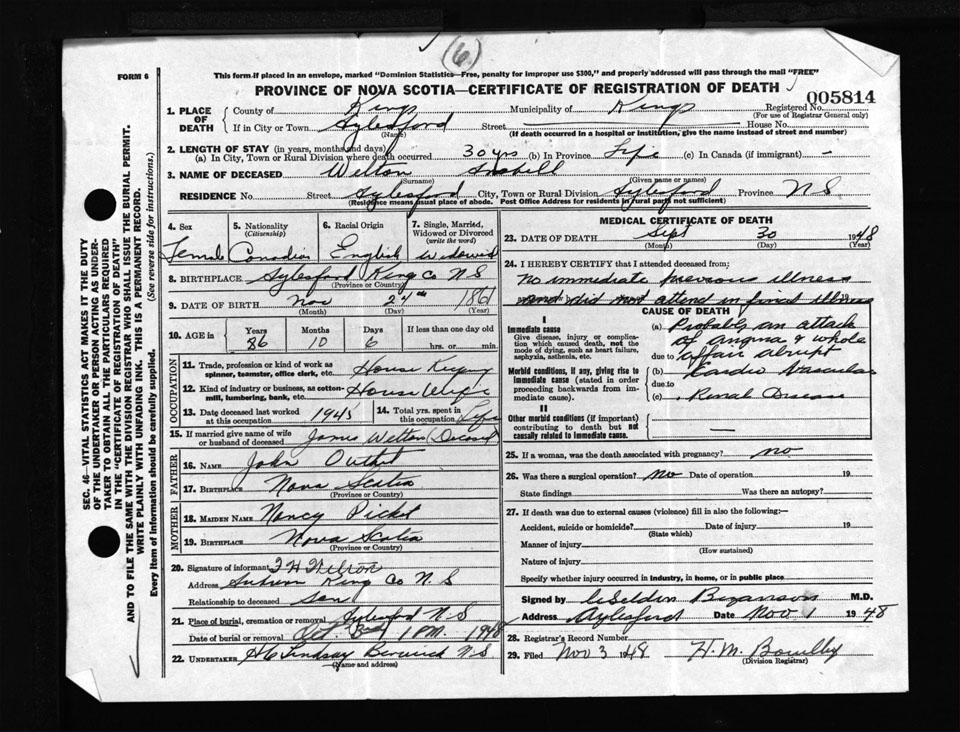 (6)
FORM 6
This form if placed in an envelope, marked "Dominion Statistics—Free, penalty for improper use $300," and properly addressed will pass through the mail "FREE"
PROVINCE OF NOVA SCOTIA—CERTIFICATE OF REGISTRATION OF DEATH
005814
1. PLACE OF DEATH County of Kings Municipality of Kings Registered No.
(For use of Registrar General only)
If in City or Town Aylesford Street House No.
(Name) (If death occurred in a hospital or institution, give the name instead of street and number)
2. LENGTH OF STAY (in years, months and days)
(a) In City, Town or Rural Division where death occurred 30 yrs (b) In Province Life (c) In Canada (if immigrant) -
3. NAME OF DECEASED Welton
(Surname) (Given name or names)
RESIDENCE No. Street Aylesford City, Town or Rural Division Aylesford Province N S
(Residence means usual place of abode. Post Office Address for residents in rural parts not sufficient)
4. Sex 5. Nationality (Citizenship) 6. Racial Origin 7. Single, Married, Widowed or Divorced (write the word)
Female Canadian English widowed
8. BIRTHPLACE Aylesford King Co N S
(Province or Country)
9. DATE OF BIRTH Nov 24th 1861
(Month) (Day) (Year)
10. AGE in Years Months Days If less than one day old
86 10 6 hrs. or min.
OCCUPATION
11. Trade, profession or kind of work as spinner, teamster, office clerk, etc. House Keeping
12. Kind of industry or business, as cotton-mill, lumbering, bank, etc. House Wife
13. Date deceased last worked at this occupation 1945 14. Total yrs. spent in this occupation Life
15. If married give name of wife or husband of deceased James Welton (Deceased)
FATHER
16. NAME John Outhit
17. BIRTHPLACE Nova Scotia
(Province or Country)
MOTHER
18. MAIDEN NAME Nancy
19. BIRTHPLACE Nova Scotia
(Province or Country)
20. Signature of informant F H Welton
Address Auburn King Co N. S
Relationship to deceased son
21. Place of burial, cremation or removal Aylesford N-S
Date of burial or removal Oct. 3rd 1 P.M. 1948
22. UNDERTAKER Lindsay Berwick N. S
(Name and address)
MEDICAL CERTIFICATE OF DEATH
23. DATE OF DEATH Sept 30 1948
(Month) (Day) (Year)
24. I HEREBY CERTIFY that I attended deceased from:
No immediate previous illness
and did not attend in final illness 19
CAUSE OF DEATH
I
Immediate cause
Give disease, injury or complication which caused death, not the mode of dying, such as heart failure, asphyxia, asthenia, etc.
(a) Probably an attack
of angina & whole
due to affair abrupt
Morbid conditions, if any, giving rise to immediate cause (stated in order proceeding backwards from immediate cause).
(b) Cardio Vascular
due to
(c) Renal Disease
II
Other morbid conditions (if important) contributing to death but not causally related to immediate cause. —
25. If a woman, was the death associated with pregnancy? no
26. Was there a surgical operation? no Date of operation 19
State findings Was there an autopsy?
27. If death was due to external causes (violence) fill in also the following:—
Accident, suicide or homicide? Date of injury 19
(State which)
Manner of injury
(How sustained)
Nature of injury
Specify whether injury occurred in industry, in home, or in public place
Signed by Seldon Bezanson M.D.
Address Aylesford Date Nov 1 1948
28. Registrar's Record Number
29. Filed Nov 3 1948 H. M.
(Division Registrar)
SEC. 46—VITAL STATISTICS ACT MAKES IT THE DUTY
OF THE UNDERTAKER OR PERSON ACTING AS UNDER-
TAKER TO OBTAIN ALL THE PARTICULARS REQUIRED
IN THE "CERTIFICATE OF REGISTRATION OF DEATH"
AND TO FILE THE SAME WITH THE DIVISION REGISTRAR WHO SHALL ISSUE THE BURIAL PERMIT.
WRITE PLAINLY WITH UNFADING INK. THIS IS A PERMANENT RECORD.
Every item of information should be carefully supplied. (See reverse side for instructions.)